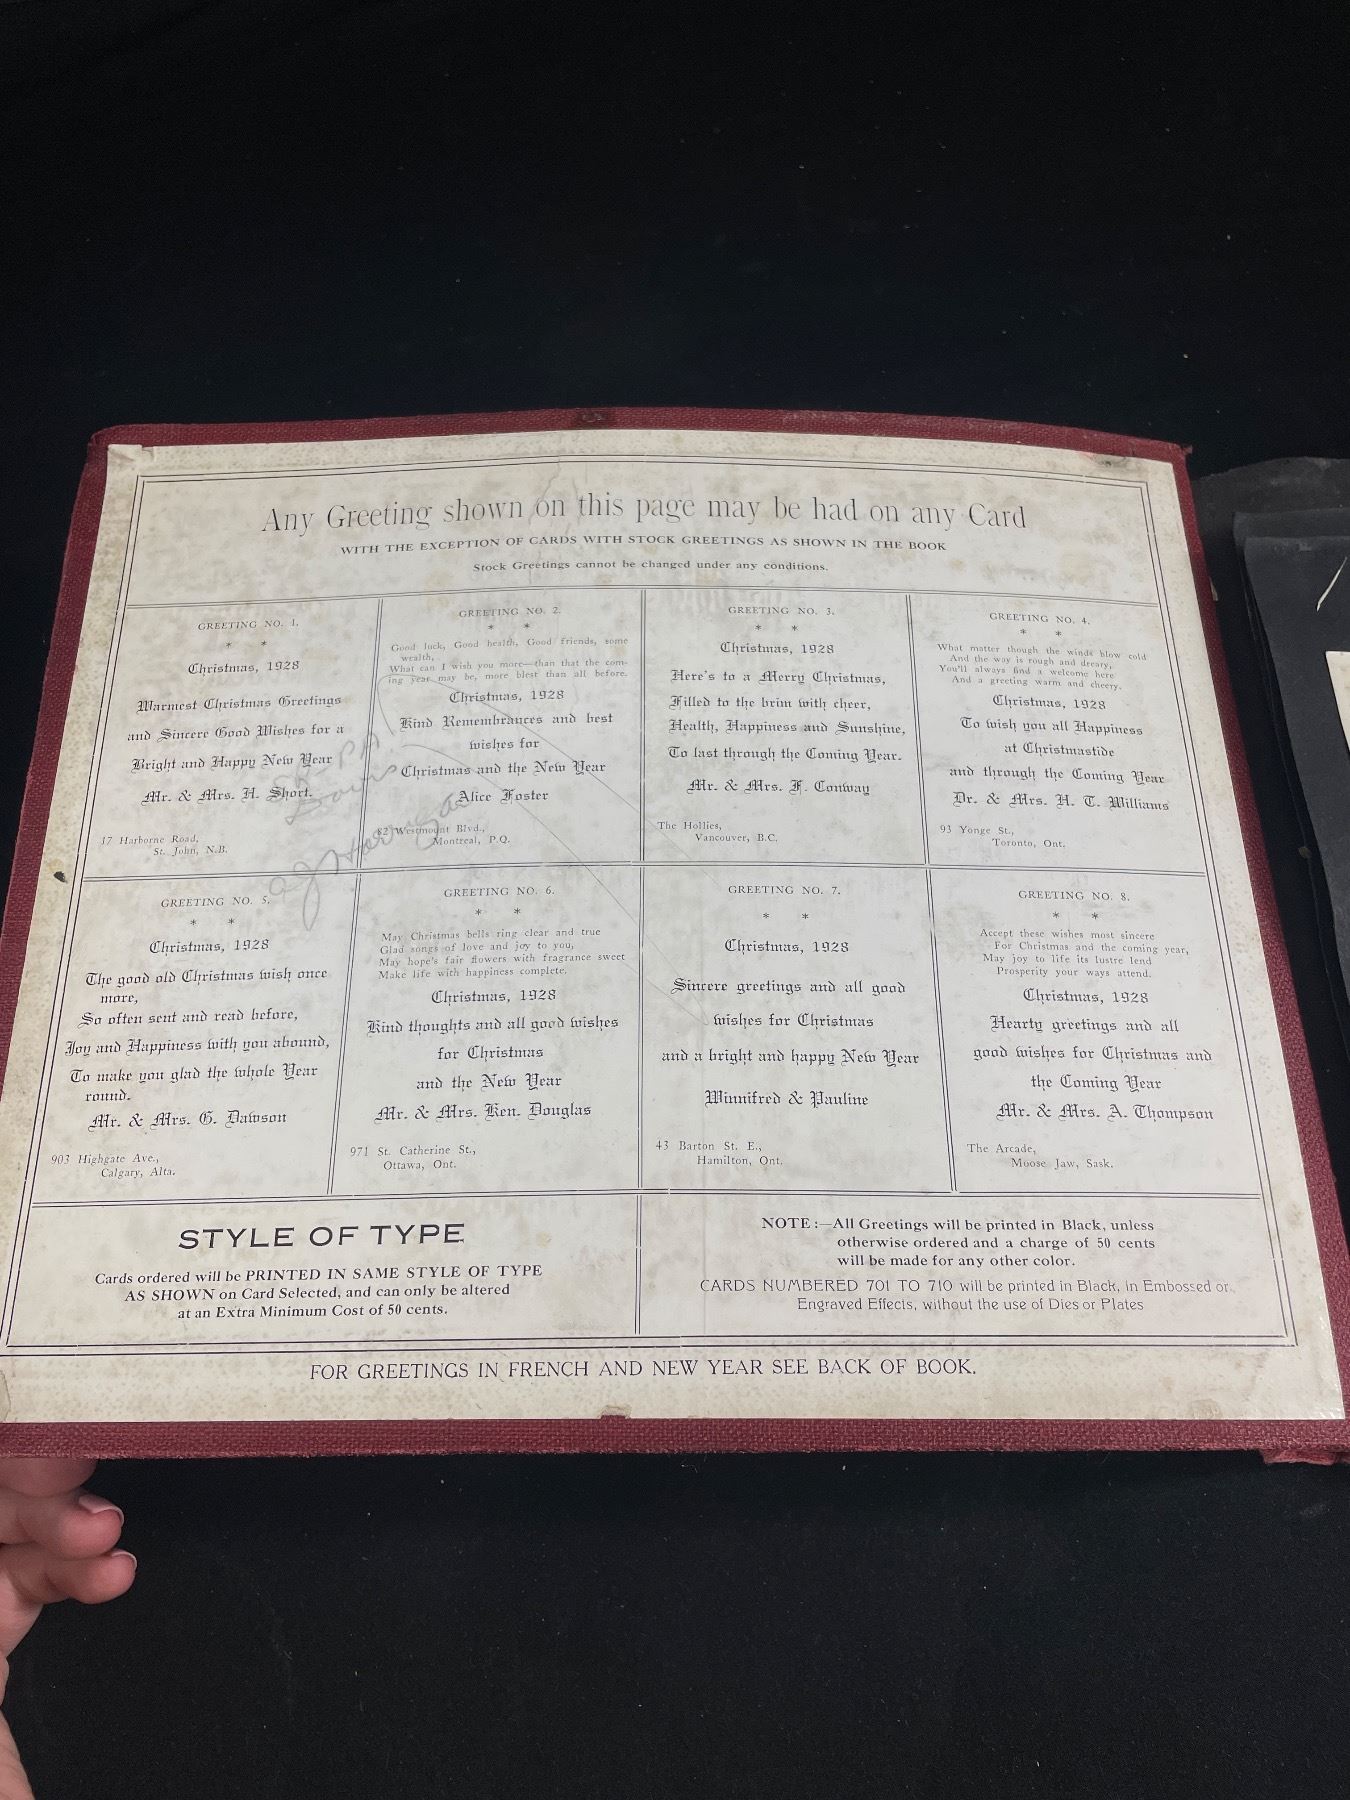 Any Greeting shown on this page may be had on any Card
WITH THE EXCEPTION OF CARDS WITH STOCK GREETINGS AS SHOWN IN THE BOOK
Stock Greetings cannot be changed under any conditions.
GREETING NO. 1.
* *
Christmas, 1928
Warmest Christmas Greetings
and Sincere Good Wishes for a
Bright and Happy New Year
Mr. & Mrs. H. Short.
17 Harborne Road,
St. John, N.B.
GREETING NO. 2.
* *
Good luck, Good health, Good friends, some
wealth,
What can I wish you more—than that the com-
ing year may be, more blest than all before.
Christmas, 1928
Kind Remembrances and best
wishes for
Christmas and the New Year
Alice Foster
82 Westmount Blvd.,
Montreal, P.Q.
GREETING NO. 3.
* *
Christmas, 1928
Here's to a Merry Christmas,
Filled to the brim with cheer,
Health, Happiness and Sunshine,
To last through the Coming Year.
Mr. & Mrs. F. Conway
The Hollies,
Vancouver, B.C.
GREETING NO. 4.
* *
What matter though the winds blow cold
And the way is rough and dreary,
You'll always find a welcome here
And a greeting warm and cheery.
Christmas, 1928
To wish you all Happiness
at Christmastide
and through the Coming Year
Dr. & Mrs. H. T. Williams
93 Yonge St.,
Toronto, Ont.
GREETING NO. 5.
* *
Christmas, 1928
The good old Christmas wish once
more,
So often sent and read before,
Joy and Happiness with you abound,
To make you glad the whole Year
round.
Mr. & Mrs. G. Dawson
903 Highgate Ave.,
Calgary, Alta.
GREETING NO. 6.
* *
May Christmas bells ring clear and true
Glad songs of love and joy to you,
May hope's fair flowers with fragrance sweet
Make life with happiness complete.
Christmas, 1928
Kind thoughts and all good wishes
for Christmas
and the New Year
Mr. & Mrs. Ken. Douglas
971 St. Catherine St.,
Ottawa, Ont.
GREETING NO. 7.
* *
Christmas, 1928
Sincere greetings and all good
wishes for Christmas
and a bright and happy New Year
Winnifred & Pauline
43 Barton St. E.,
Hamilton, Ont.
GREETING NO. 8.
* *
Accept these wishes most sincere
For Christmas and the coming year,
May joy to life its lustre lend
Prosperity your ways attend.
Christmas, 1928
Hearty greetings and all
good wishes for Christmas and
the Coming Year
Mr. & Mrs. A. Thompson
The Arcade,
Moose Jaw, Sask.
STYLE OF TYPE
Cards ordered will be PRINTED IN SAME STYLE OF TYPE
AS SHOWN on Card Selected, and can only be altered
at an Extra Minimum Cost of 50 cents.
NOTE:—All Greetings will be printed in Black, unless
otherwise ordered and a charge of 50 cents
will be made for any other color.
CARDS NUMBERED 701 TO 710 will be printed in Black, in Embossed or
Engraved Effects, without the use of Dies or Plates
FOR GREETINGS IN FRENCH AND NEW YEAR SEE BACK OF BOOK.